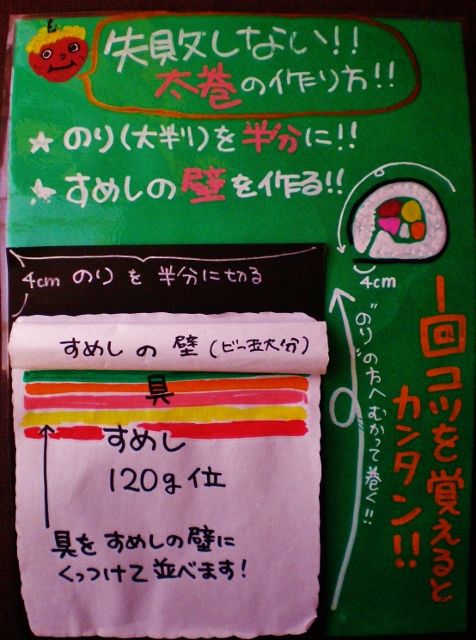 失敗しない!!
太巻の作り方!!
★ のり(大判)を半分に!!
★ すめしの壁を作る!!
4cm のりを半分に切る
すめしの壁(ビー玉大分)
具
すめし
120g位
具をすめしの壁に
くっつけて並べます!
4cm
"のり"の方へむかって巻く!!
一回コツを覚えると
カンタン!!